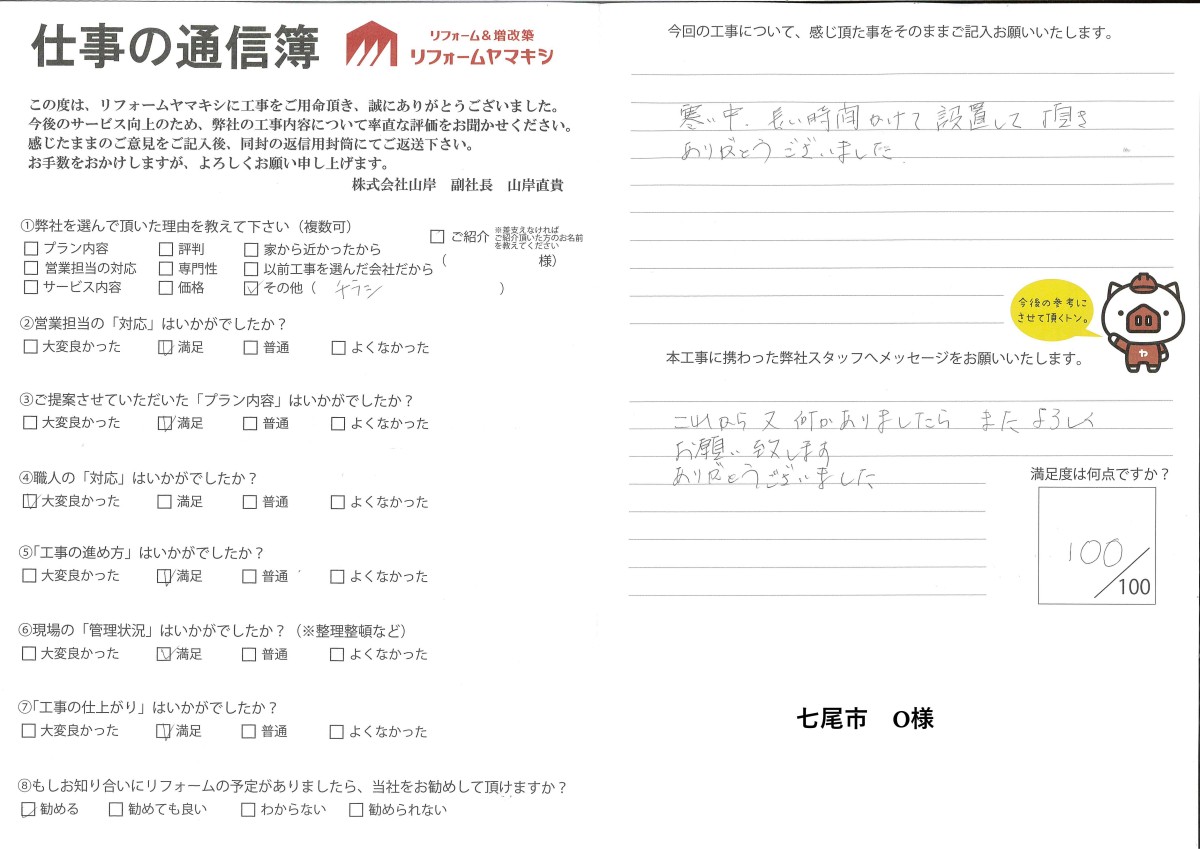 仕事の通信簿
リフォーム&増改築
リフォームヤマキシ
この度は、リフォームヤマキシに工事をご用命頂き、誠にありがとうございました。
今後のサービス向上のため、弊社の工事内容について率直な評価をお聞かせください。
感じたままのご意見をご記入後、同封の返信用封筒にてご返送下さい。
お手数をおかけしますが、よろしくお願い申し上げます。
株式会社山岸　副社長　山岸直貴
①弊社を選んで頂いた理由を教えて下さい（複数可）
□プラン内容 □評判 □家から近かったから □ご紹介 ※差支えなければ
ご紹介頂いた方のお名前
を教えてください
□営業担当の対応 □専門性 □以前工事を選んだ会社だから （　　　様）
□サービス内容 □価格 ☑その他（ チラシ ）
②営業担当の「対応」はいかがでしたか？
□大変良かった ☑満足 □普通 □よくなかった
③ご提案させていただいた「プラン内容」はいかがでしたか？
□大変良かった ☑満足 □普通 □よくなかった
④職人の「対応」はいかがでしたか？
☑大変良かった □満足 □普通 □よくなかった
⑤「工事の進め方」はいかがでしたか？
□大変良かった ☑満足 □普通 □よくなかった
⑥現場の「管理状況」はいかがでしたか？（※整理整頓など）
□大変良かった ☑満足 □普通 □よくなかった
⑦「工事の仕上がり」はいかがでしたか？
□大変良かった ☑満足 □普通 □よくなかった
⑧もしお知り合いにリフォームの予定がありましたら、当社をお勧めして頂けますか？
☑勧める □勧めても良い □わからない □勧められない
今回の工事について、感じ頂た事をそのままご記入お願いいたします。
寒い中、長い時間かけて設置して頂き
ありがとうございました
今後の参考に
させて頂くトン。
ヤ
本工事に携わった弊社スタッフへメッセージをお願いいたします。
これから又何かありましたらまたよろしく
お願い致します
ありがとうございました
満足度は何点ですか？
100/100
七尾市　O様